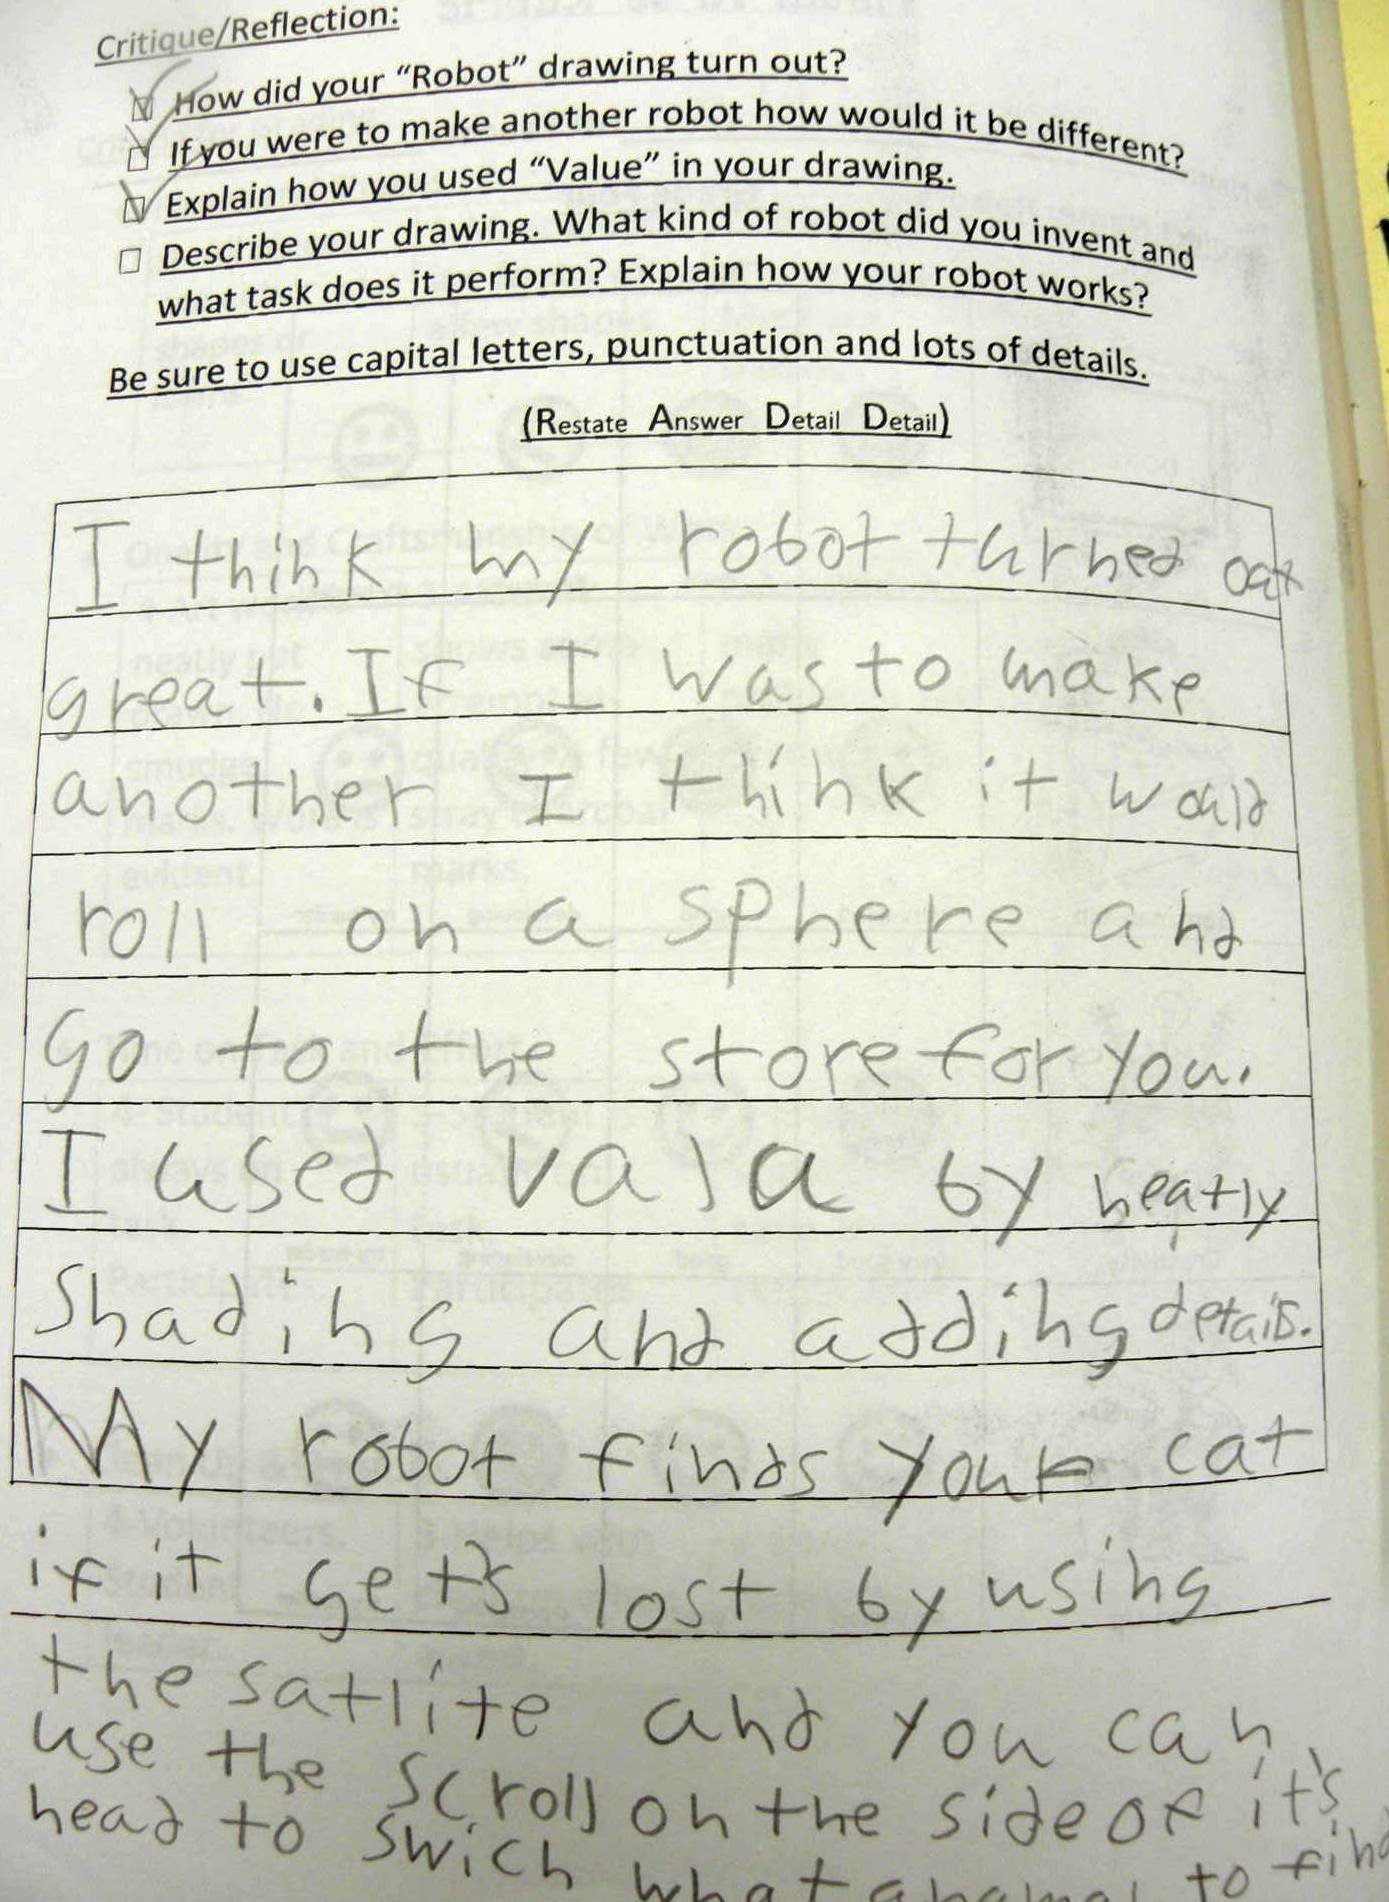 Critique/Reflection:
How did your “Robot” drawing turn out?
If you were to make another robot how would it be different?
Explain how you used “Value” in your drawing.
Describe your drawing. What kind of robot did you invent and
what task does it perform? Explain how your robot works?
Be sure to use capital letters, punctuation and lots of details.
(Restate Answer Detail Detail)
I think my robot turned out
great. If I was to make
another I think it would
roll on a sphere and
go to the store for you.
I used valu by neatly
shading and adding details.
My robot finds your cat
if it get's lost by using
the satlite and you can
use the scroll on the side of it's
head to swich what to find